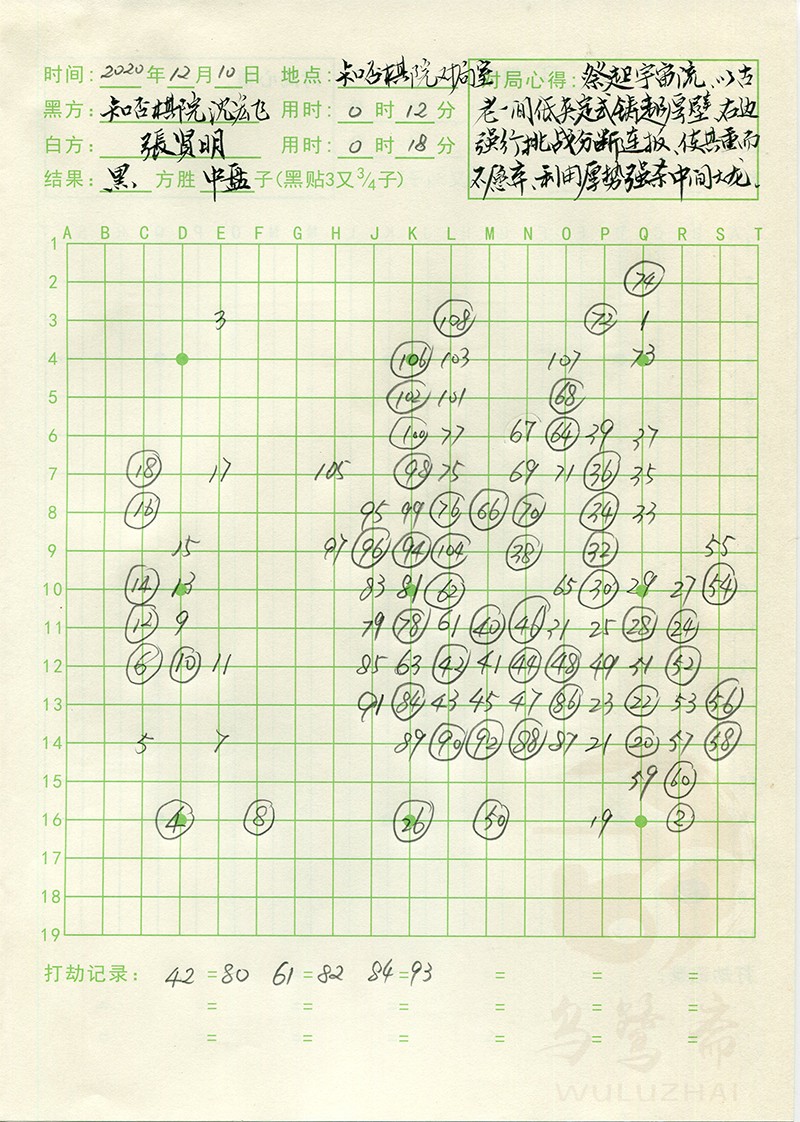 时间：2020年12月10日 地点：知否棋院对局室
黑方：知否棋院沈宏飞 用时：0时12分
白方：張贤明 用时：0时18分
结果：黑方胜中盘子(黑贴3又3/4子)
对局心得：祭起宇宙流，以古
老一间低夹定式铸起厚壁，右边
强行挑战分断连扳，使其重而
不愿弃，利用厚势强杀中间大龙。
A B C D E F G H J K L M N O P Q R S T
1
2 74
3 3 108 72 1
4 106 103 107 73
5 102 101 68
6 100 77 67 64 39 37
7 18 17 105 98 75 69 71 36 35
8 16 95 99 76 66 70 34 33
9 15 97 96 94 104 38 32 55
10 14 13 83 81 62 65 30 29 27 54
11 12 9 79 78 61 40 46 31 25 28 24
12 6 10 11 85 63 42 41 44 48 49 51 52
13 91 84 43 45 47 86 23 22 53 56
14 5 7 89 90 92 88 87 21 20 57 58
15 59 60
16 4 8 26 50 19 2
17
18
19
打劫记录：42=80 61=82 84=93 = = =
= = = = = =
= = = = = =
乌鹭斋
WULUZHAI